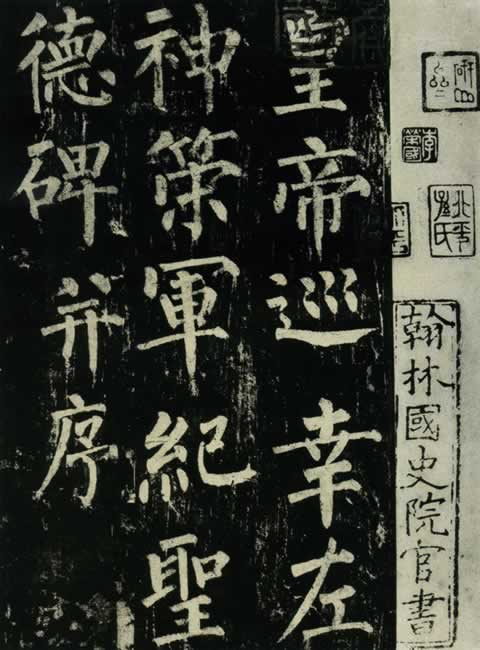 翰林國史院官書
北平孫氏
皇帝巡幸左
神策軍紀聖
德碑并序